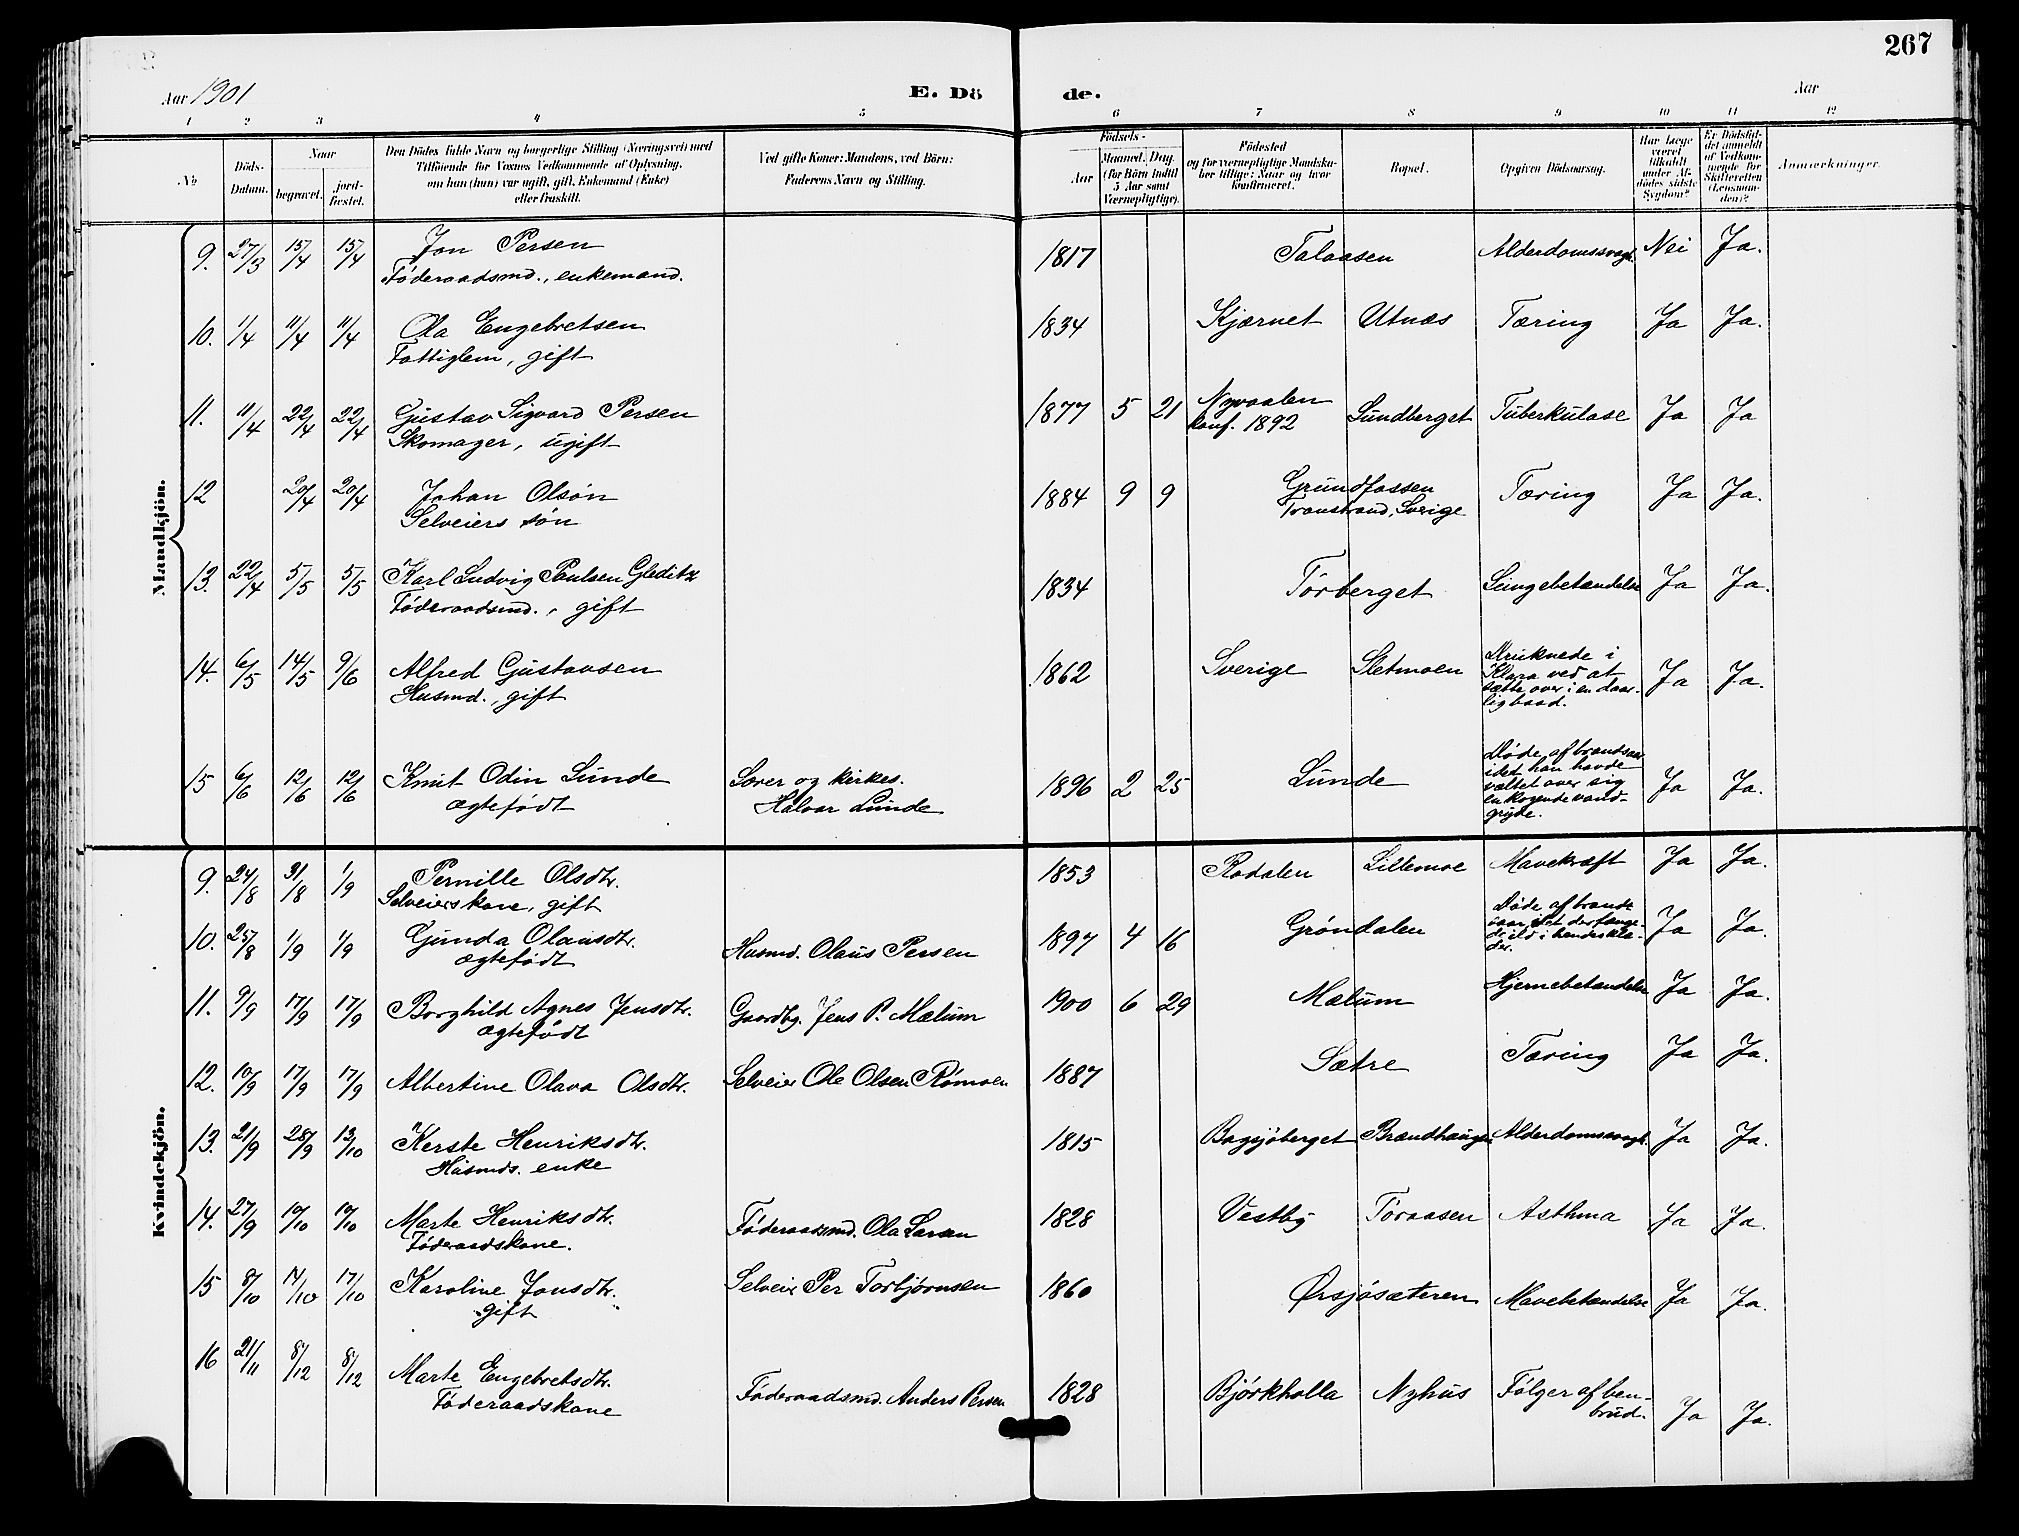 267
Aar 1901
E. Dö de.
Aar
1 2 3 4 5 6 7 8 9 10 11 12
No
Döds-Datum.
Naar begravet. jordfæstet.
Den Dödes fulde Navn og borgerlige Stilling (Næringsvei) med
Tilföiende for Voxnes Vedkommende af Oplysning,
om han (hun) var ugift, gift, Enkemand (Enke)
eller fraskilt.
Ved gifte Koner: Mandens, ved Börn:
Faderens Navn og Stilling.
Födsels-
Aar
Maaned. Dag.
(for Börn indtil
5 Aar samt
Værnepligtige).
Födested
og for værnepligtige Mandskaber tillige: Naar og hvor
Konfirmeret.
Bopæl.
Opgiven Dödsaarsag.
Har Læge
været
tilkaldt
under Afdödes sidste
Sygdom?
Er Dödsfaldet anmeldt
af Vedkommende for
Skifteretten
(Lensmanden)?
Anmerkninger.
Mandkjön.
9. 27/3 15/4 15/4 Jon Persen 1817 Talaasen Alderdomssvagh. Nei Ja.
Føderaadsmd., enkemand.
10. 1/4 11/4 11/4 Ola Engebretsen 1834 Kjærnet Utnæs Tæring Ja Ja.
Fattiglem, gift
11. 11/4 22/4 22/4 Gustav Sigvard Persen 1877 5 21 Nyvaalen Sundberget Tuberkulose Ja Ja
Skomager, ugift konf. 1892
12 20/4 20/4 Johan Olsøn 1884 9 9 Grundfossen Tæring Ja Ja.
Selveiers søn Transtrand, Sverige
13. 22/4 5/5 5/5 Karl Ludvig Paulsen Gleditz 1834 Tørberget Lungebetændelse Ja Ja.
Føderaadsmd., gift
14. 6/5 14/5 9/6 Alfred Gustavsen 1862 Sverige Sletmoen Druknede i
Husmd., gift Klara ved at
sætte over i en daarlig baad. Ja Ja.
15 6/6 12/6 12/6 Knut Odin Lunde Lærer og kirkes. 1896 2 25 Lunde Døde af brandsaar
ægtefødt Halvor Lunde idet han havde
væltet over sig
en kogende vandgryde. Ja Ja.
Kvindekjön.
9. 24/8 31/8 1/9 Pernille Olsdtr. 1853 Rodalen Lillemoe Mavekræft Ja Ja.
Selveierskone, gift
10. 25/8 1/9 1/9 Gunda Olausdtr. Husmd. Olaus Persen 1897 4 16 Grøndalen Døde af brandsaar idet der fængede ild i hendes klæder. Ja Ja.
ægtefødt
11. 9/9 17/9 17/9 Borghild Agnes Jensdtr. Gaardbg. Jens P. Mælum 1900 6 29 Mælum Hjernebetændelse Ja Ja.
ægtefødt
12. 10/9 17/9 17/9 Albertine Olava Olsdtr. Selveier Ole Olsen Rømoen 1887 Sætre Tæring Ja Ja.
13. 21/9 28/9 13/10 Kerste Henriksdtr. 1815 Bagsjøberget Brændhaugen Alderdomssvagh. Ja Ja.
Husmds. enke
14. 27/9 10/10 10/10 Marte Henriksdtr. Føderaadsmd. Ola Larsen 1828 Vestby Toraasen Asthma Ja Ja.
Føderaadskone.
15 8/10 14/10 17/10 Karoline Jonsdtr. Selveier Per Torbjørnsen 1860 Ørsjøsæteren Mavebetændelse Ja Ja.
gift
16 21/11 8/12 8/12 Marte Engebretsdtr. Føderaadsmd. Anders Persen 1828 Bjørkholla Nyhus Følger af benbrud. Ja Ja.
Føderaadskone